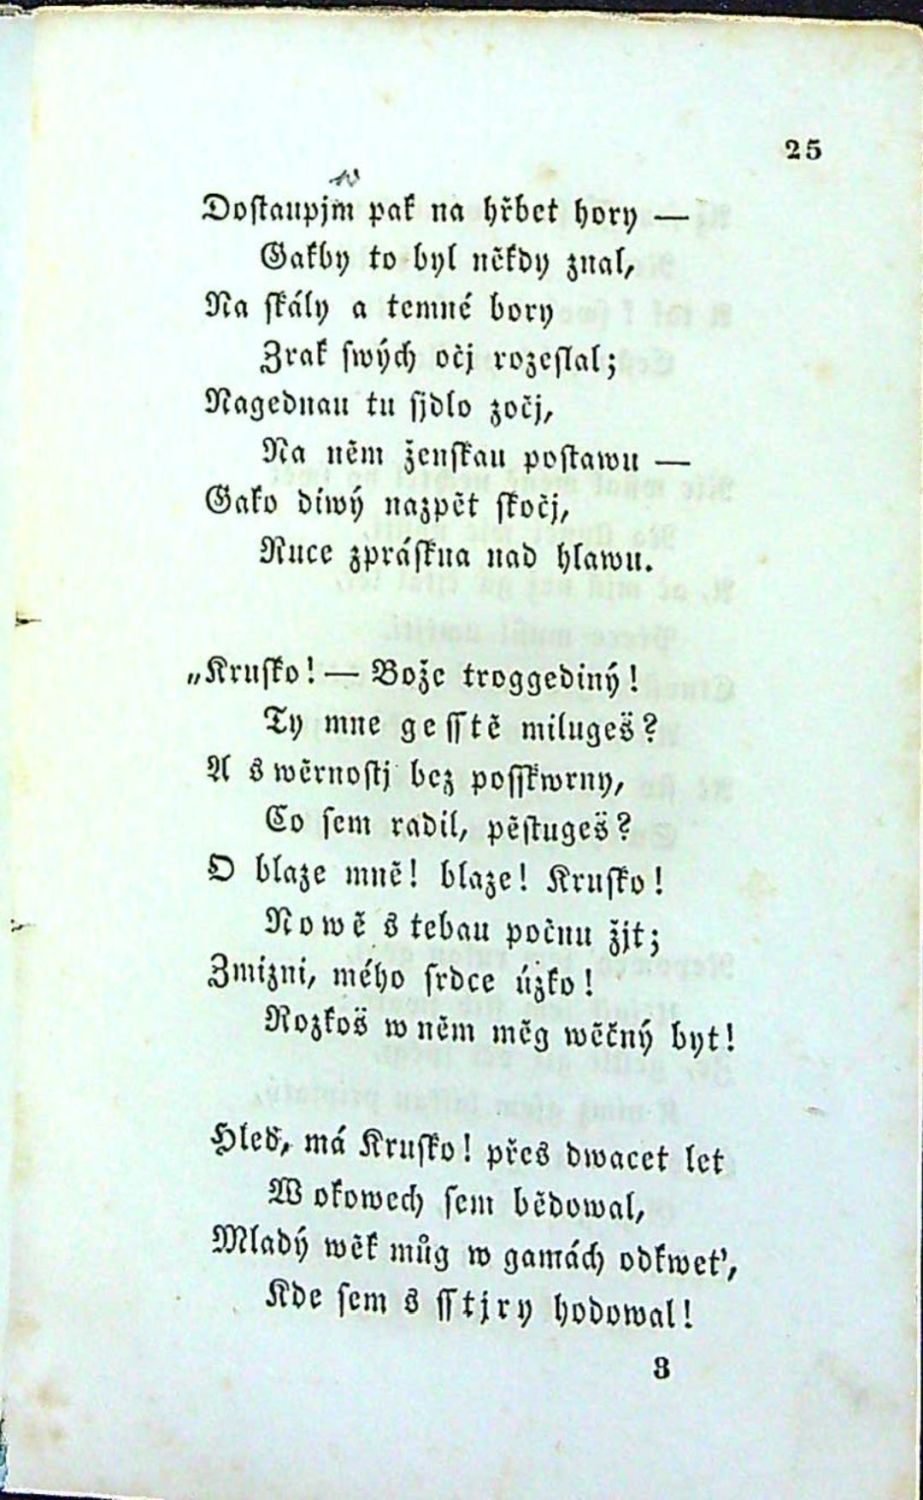 25
w
Dostaupjm pak na hřbet hory —
Gakby to byl někdy znal,
Na skály a temné bory
Zrak swých očj rozeslal;
Nagednau tu sjdlo zočj,
Na něm ženskau postawu —
Gako diwý nazpět skočj,
Ruce zpráskna nad hlawu.
„Krusko! — Bože troggediný!
Ty mne gesstě milugeš?
A s wěrnostj bez posskwrny,
Co sem radil, pěstugeš?
O blaze mně! blaze! Krusko!
Nowě s tebau počnu žjt;
Zmizni, mého srdce úzko!
Rozkoš w něm měg wěčný byt!
Hleď, má Krusko! přes dwacet let
W okowech sem bědowal,
Mladý wěk můg w gamách odkwet',
Kde sem s sstjry hodowal!
3